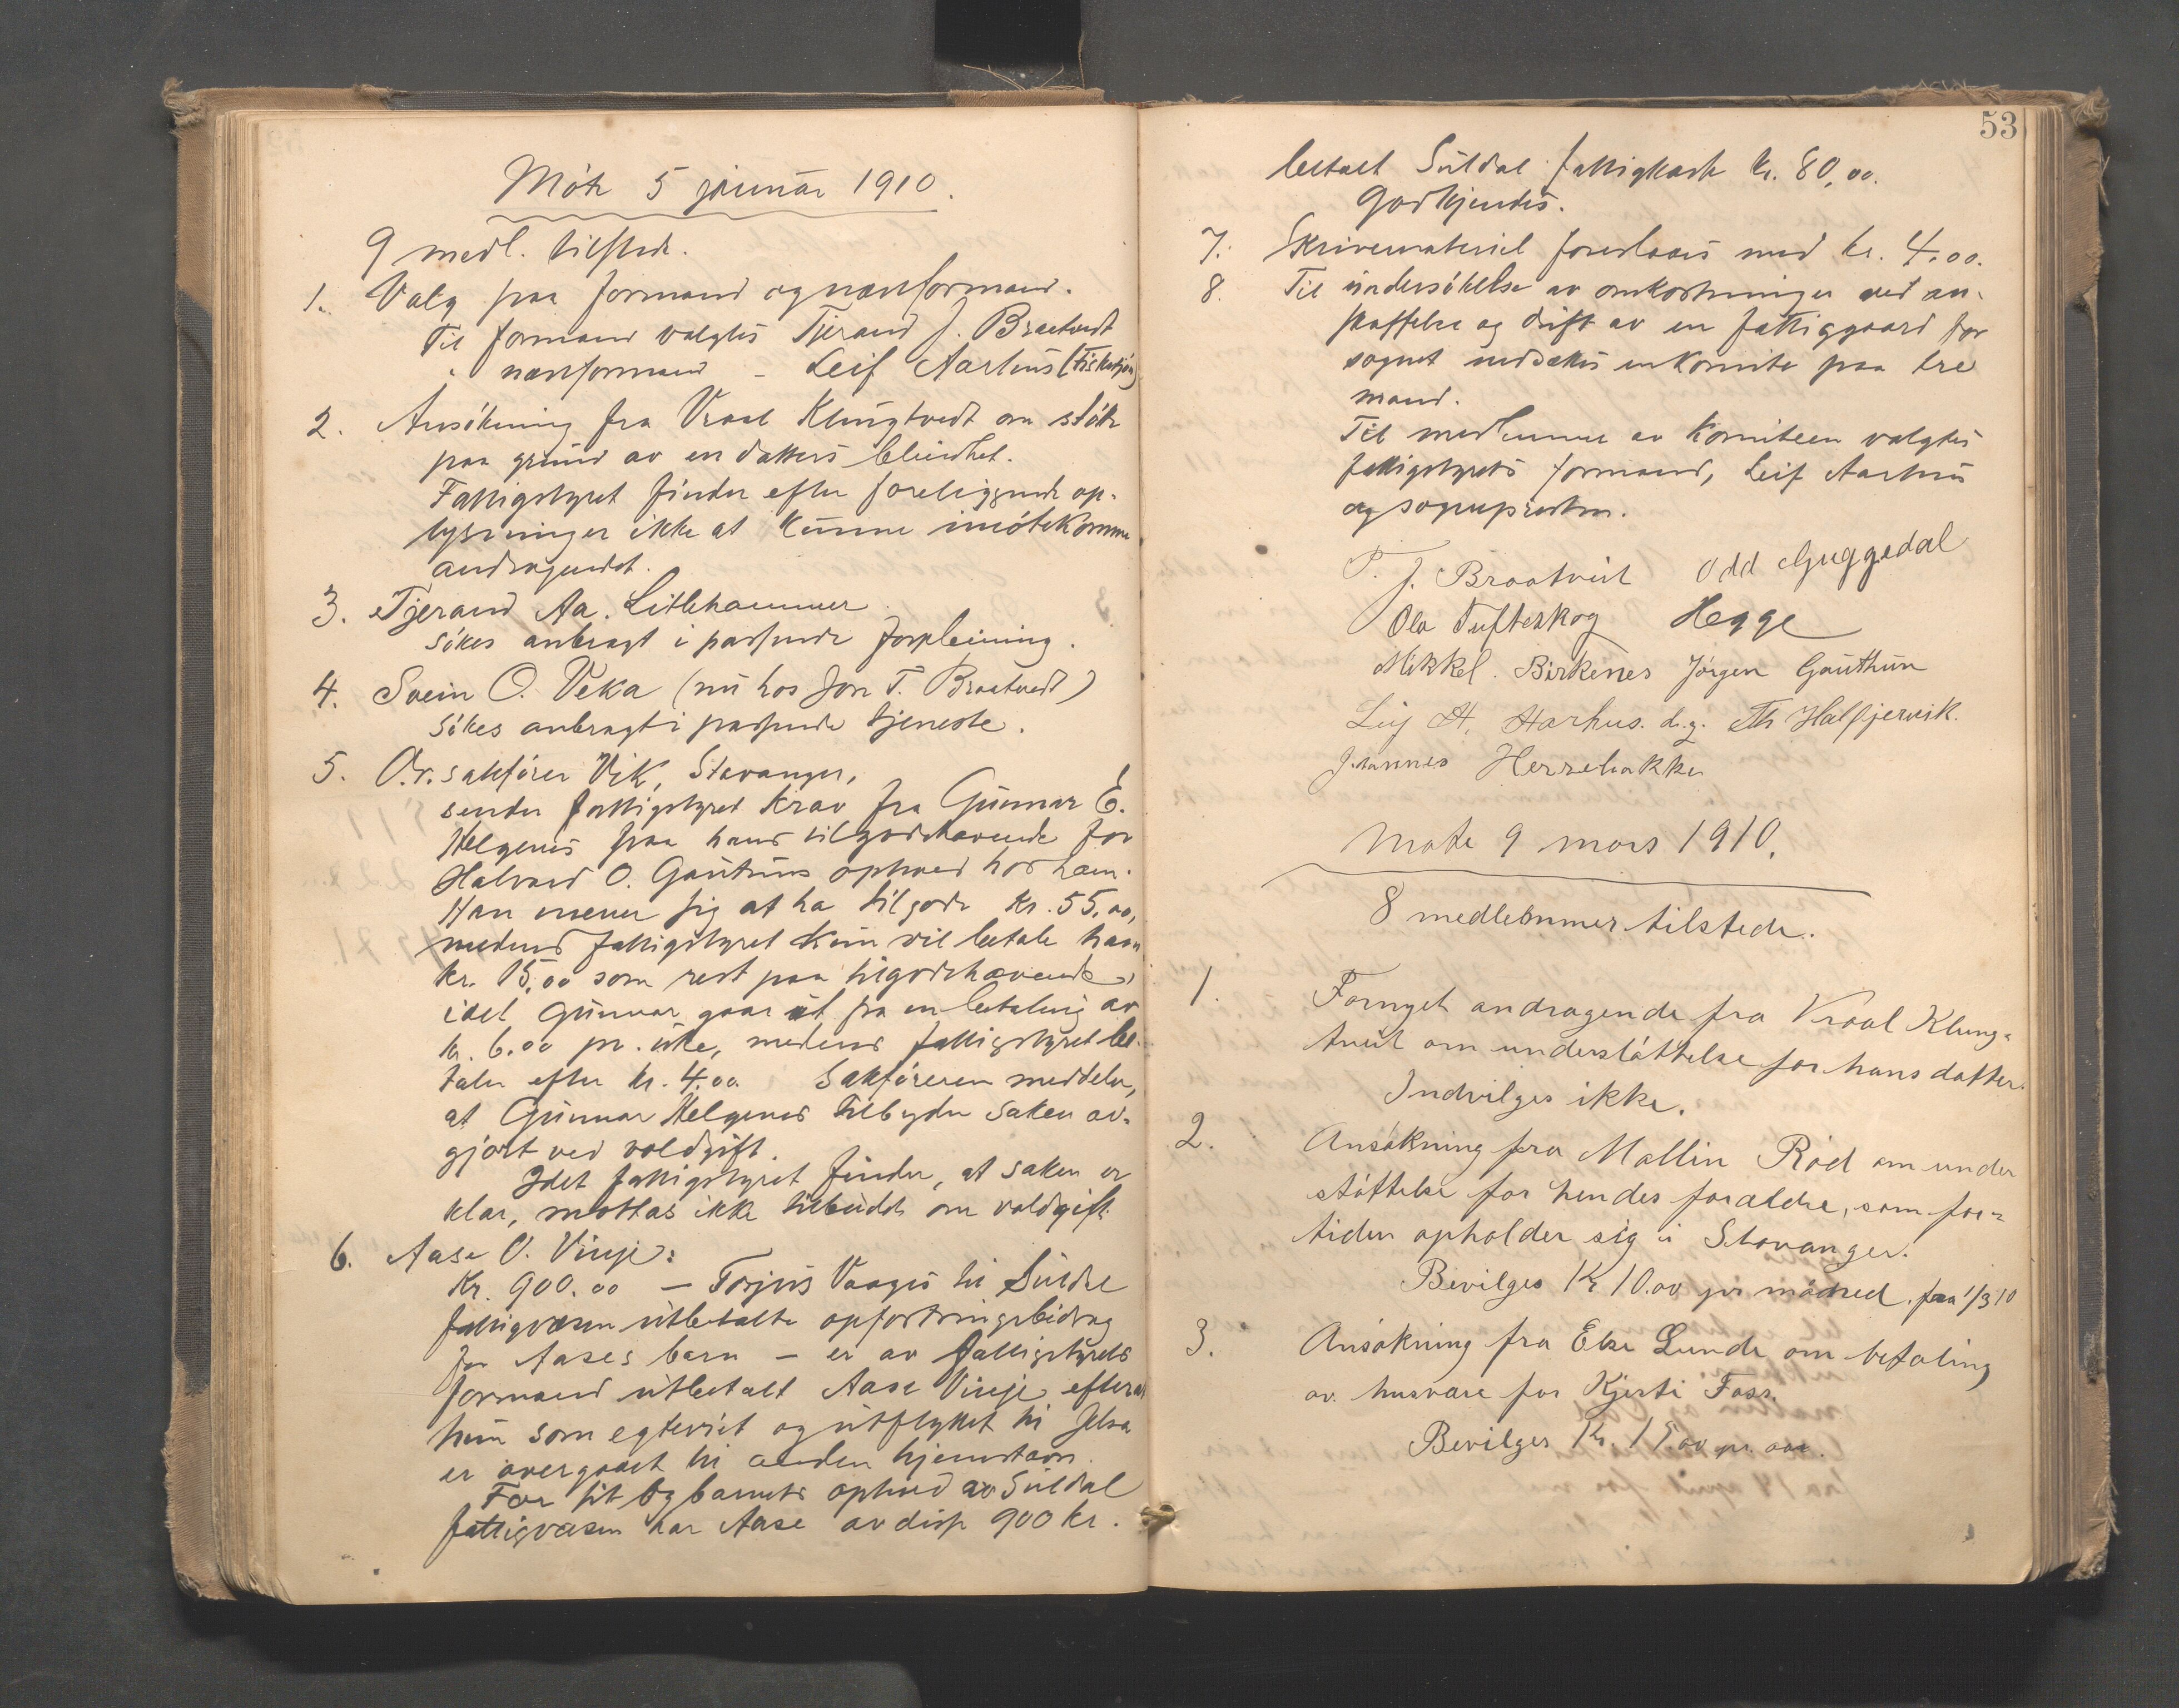 Møte 5 januar 1910.
9 medl. tilstede.
1. Valg paa formand og næstformand.
Til formand valgtes Tjerand J. Braatvedt
" næstformand - Leif Aarhus (Fiskekjøn)
2. Ansökning fra Vraal Klungtvedt om støtte
paa grund av en datters blindhet.
Fattigstyret finder efter foreliggende op-
lysninger ikke at kunne imøtekomme
andragendet.
3. Tjerand Aa. Litlehammer
søkes anbragt i passende forpleining.
4. Svein O. Veka (nu hos Jon T. Braatvedt)
søkes anbragt i passende tjeneste.
5. O.r.sakfører Vik, Stavanger,
sender fattigstyret krav fra Gunnar E.
Helgenes paa hans tilgodehavende for
Halvard O. Gautuns ophold hos ham.
Han mener sig at ha tilgode kr. 55,00,
medens fattigstyret kun vil betale ham
kr. 15,00 som rest paa tilgodehavende,
idet Gunnar gaar ut fra en betaling av
kr. 6.00 pr. uke, medens fattigstyret be-
taler efter kr. 4,00. Sakføreren meddeler,
at Gunnar Helgenes tilbyder saken av-
gjort ved voldgift.
Idet fattigstyret finder, at saken er
klar, mottas ikke tilbudet om voldgift.
6. Aase O. Vinje:
Kr. 900.00 — Torjus Vaages til Suldal
fattigvæsen utbetalte opfostringsbidrag
for Aases barn — er av fattigstyrets
formand utbetalt Aase Vinje efterat
hun som egteviet og utflyttet til Jelsa
er overgaaet til anden hjemstavn.
For sit og barnets ophold av Suldal
fattigvæsen har Aase av disse 900 kr.
53
betalt Suldal fattigkasse kr. 80,00.
Godkjendes.
7. Skrivemateriel foreslaaes med kr. 4.00.
8. Til undersøkelse av omkostninger ved an-
skaffelse og drift av en fattiggaard for
sognet nedsættes en komite paa tre
mand.
Til medlemmer av komiteen valgtes
fattigstyrets formand, Leif Aarhus
og sognepresten.
T. J. Braatveit Odd Guggedal
Ola Tufteskog Hegge
Mikkel Birkenes Jørgen Gauthun
Leif A. Aarhus. d.y. Th Halfjervik.
Johannes Herrebakke
Møte 9 mars 1910.
8 medlemmer tilstede.
1. Fornyet andragende fra Vraal Klung-
tveit om understøttelse for hans datter.
Indvilges ikke.
2. Ansøkning fra Mallin Rød om under
støttelse for hendes forældre, som for-
tiden opholder sig i Stavanger.
Bevilges Kr 10.00 pr måned. fra 1/3 10
3. Ansøkning fra Else Lunde om betaling
av husvære for Kjersti Foss.
Bevilges Kr. 15.00 pr. aar.